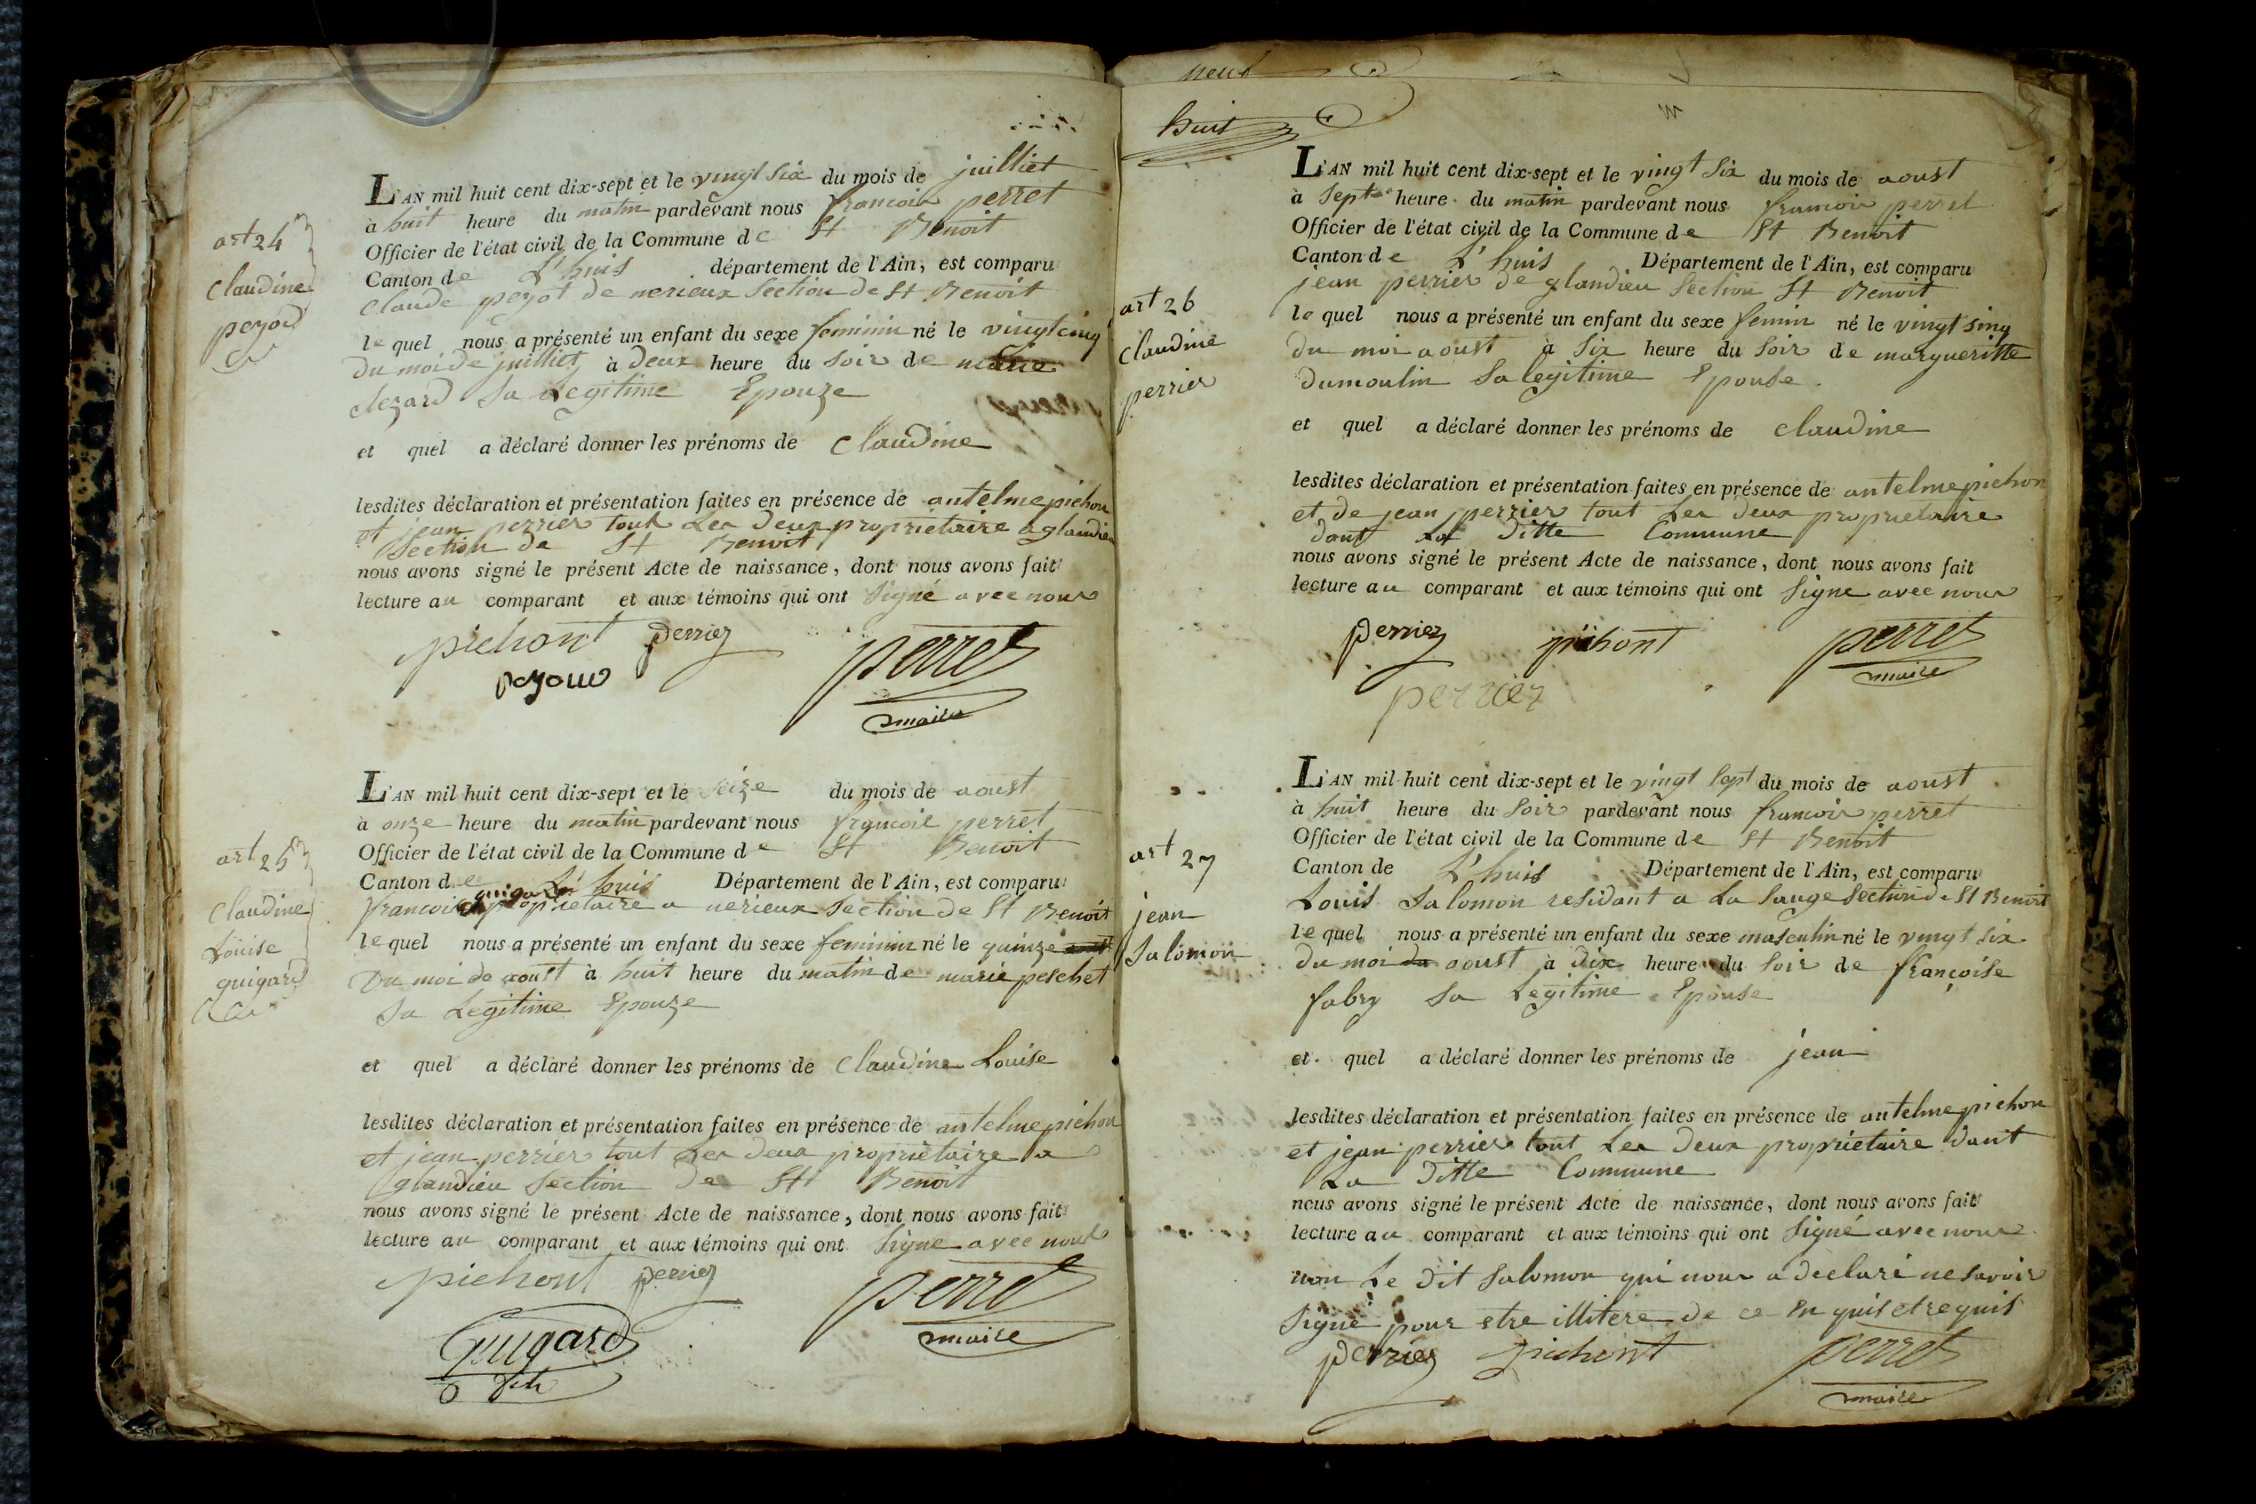 art 24
claudine
peyod
L'AN mil huit cent dix-sept et le vingt six du mois de juilliet
à huit heure du matin pardevant nous francois perret
Officier de l'état civil de la Commune de St Benoit
Canton de L'huis département de l'Ain, est comparu
Claude peyot de nerieux Section de St Benoit
le quel nous a présenté un enfant du sexe feminin né le vingt cinq
Du moi de juilliet à Deux heure du Soir de marie
clezard Sa Legitime Epouze
et quel a déclaré donner les prénoms de Claudine
lesdites déclaration et présentation faites en présence de antelme pichon
et jean perrier tout Les Deux proprietaire a glandieu
Section de St Benoit
nous avons signé le présent Acte de naissance, dont nous avons fait
lecture au comparant et aux témoins qui ont Signé avec nous
pichont perriez
perret
maire
art 25
claudine
Louise
guigard
L'AN mil huit cent dix-sept et le seize du mois de aoust
à onze heure du matin pardevant nous françois perret
Officier de l'état civil de la Commune de St Benoit
Canton de L'huis Département de l'Ain, est comparu
guigard
francois proprietaire a nerieux Section de St Benoit
le quel nous a présenté un enfant du sexe feminin né le quinze
Du moi de aoust à huit heure du matin de marie peschet
Sa Legitime Epouze
et quel a déclaré donner les prénoms de Claudine Louise
lesdites déclaration et présentation faites en présence de antelme pichon
et jean perrier tout Les Deux proprietaire a
glandieu Section De St Benoit
nous avons signé le présent Acte de naissance, dont nous avons fait
lecture au comparant et aux témoins qui ont Signe avec nous
pichont perriez
perret
maire
Guigard
neuf
huit
art 26
claudine
perrier
L'AN mil huit cent dix-sept et le vingt Six du mois de aoust
à Sept heure du matin pardevant nous francois perret
Officier de l'état civil de la Commune de St Benoit
Canton de L'huis Département de l'Ain, est comparu
jean perrier de glandieu Section St Benoit
le quel nous a présenté un enfant du sexe femin né le vingt sinq
Du moi aoust à Six heure du Soir de margueritte
dumoulin Sa legitime Epouse
et quel a déclaré donner les prénoms de Claudine
lesdites déclaration et présentation faites en présence de antelme pichon
et de jean perrier tout Les deux proprietaire
dans La Ditte Commune
nous avons signé le présent Acte de naissance, dont nous avons fait
lecture au comparant et aux témoins qui ont Signe avec nous
perriez pichont perret
maire
perrier
art 27
jean
Salomon
L'AN mil huit cent dix-sept et le vingt Sept du mois de aoust
à huit heure du Soir pardevant nous francois perret
Officier de l'état civil de la Commune de St Benoit
Canton de L'huis Département de l'Ain, est comparu
Louis Salomon residant a La Sauge Section de St Benoit
le quel nous a présenté un enfant du sexe masculin né le vingt Six
Du moi aoust à Dix heure du Soir de françoise
fabry Sa Legitime Epouse
et quel a déclaré donner les prénoms de jean
lesdites déclaration et présentation faites en présence de antelme pichon
et jean perrier tout Les Deux propriétaire dant
La Ditte Commune
nous avons signé le présent Acte de naissance, dont nous avons fait
lecture au comparant et aux témoins qui ont Signé avec nous
non Le Dit Salomon qui nous a declaré ne Savoir
Signé pour etre illitere de ce Enquis et requis
perriez pichont perret
maire